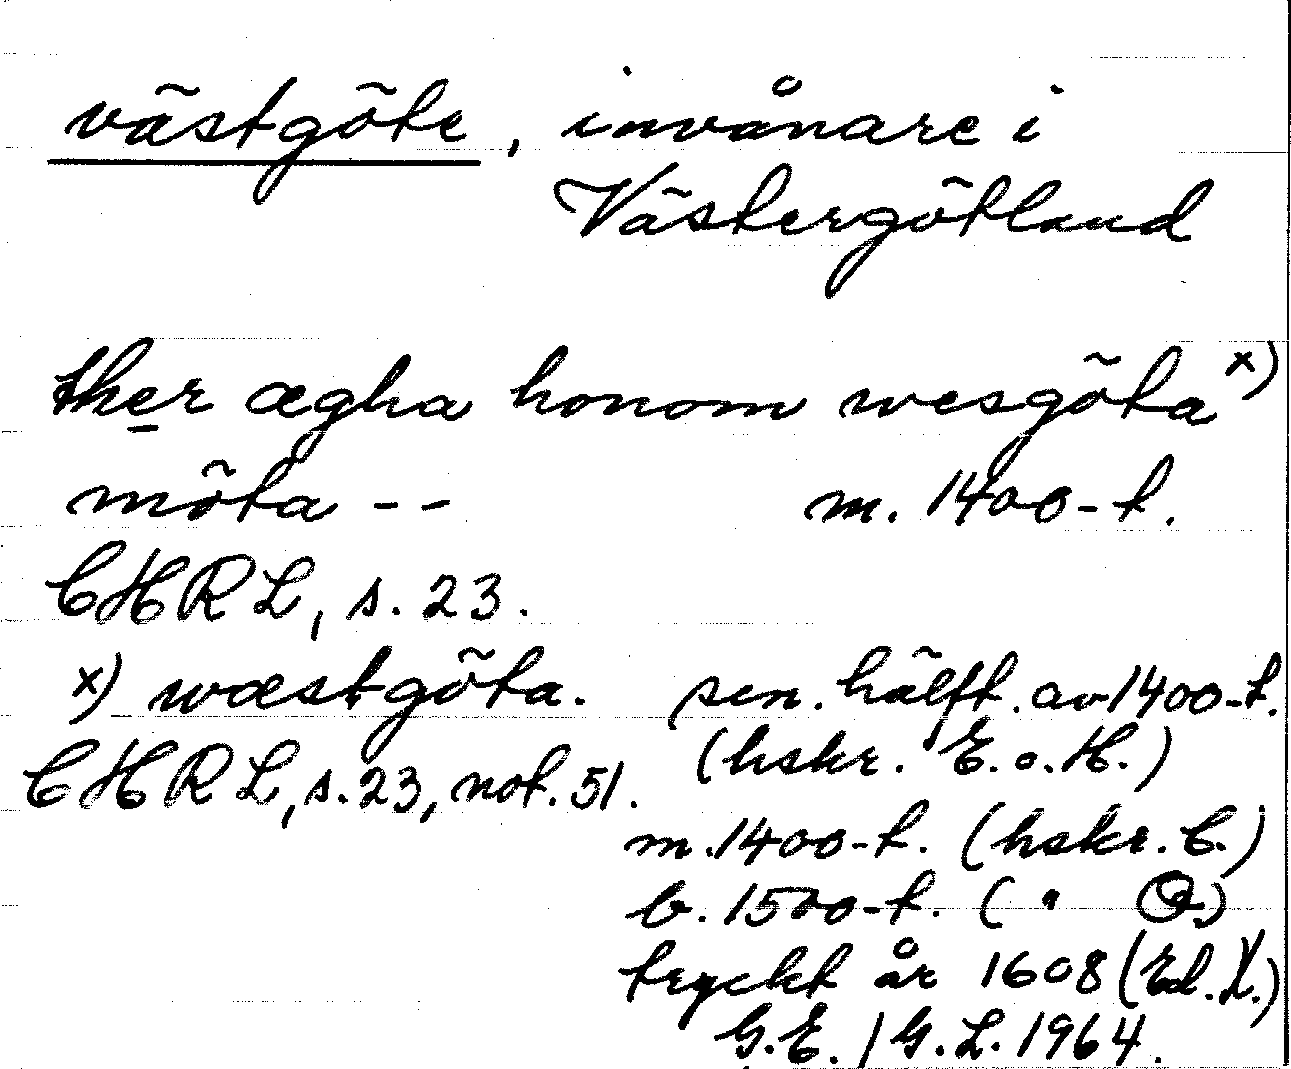 västgöte, invånare i
Västergötland
ther ægha honom wesgöta x)
möta -- m. 1400-t.
CHRL, s. 23.
x) wæstgöta. sen. hälft. av 1400-t.
(hskr. E. o. H.)
CHRL, s. 23, not. 51.
m. 1400-t. (hskr. C.)
b. 1500-t. ( " Q.)
tryckt år 1608 (Ed. L.)
G.E. / G.L. 1964.